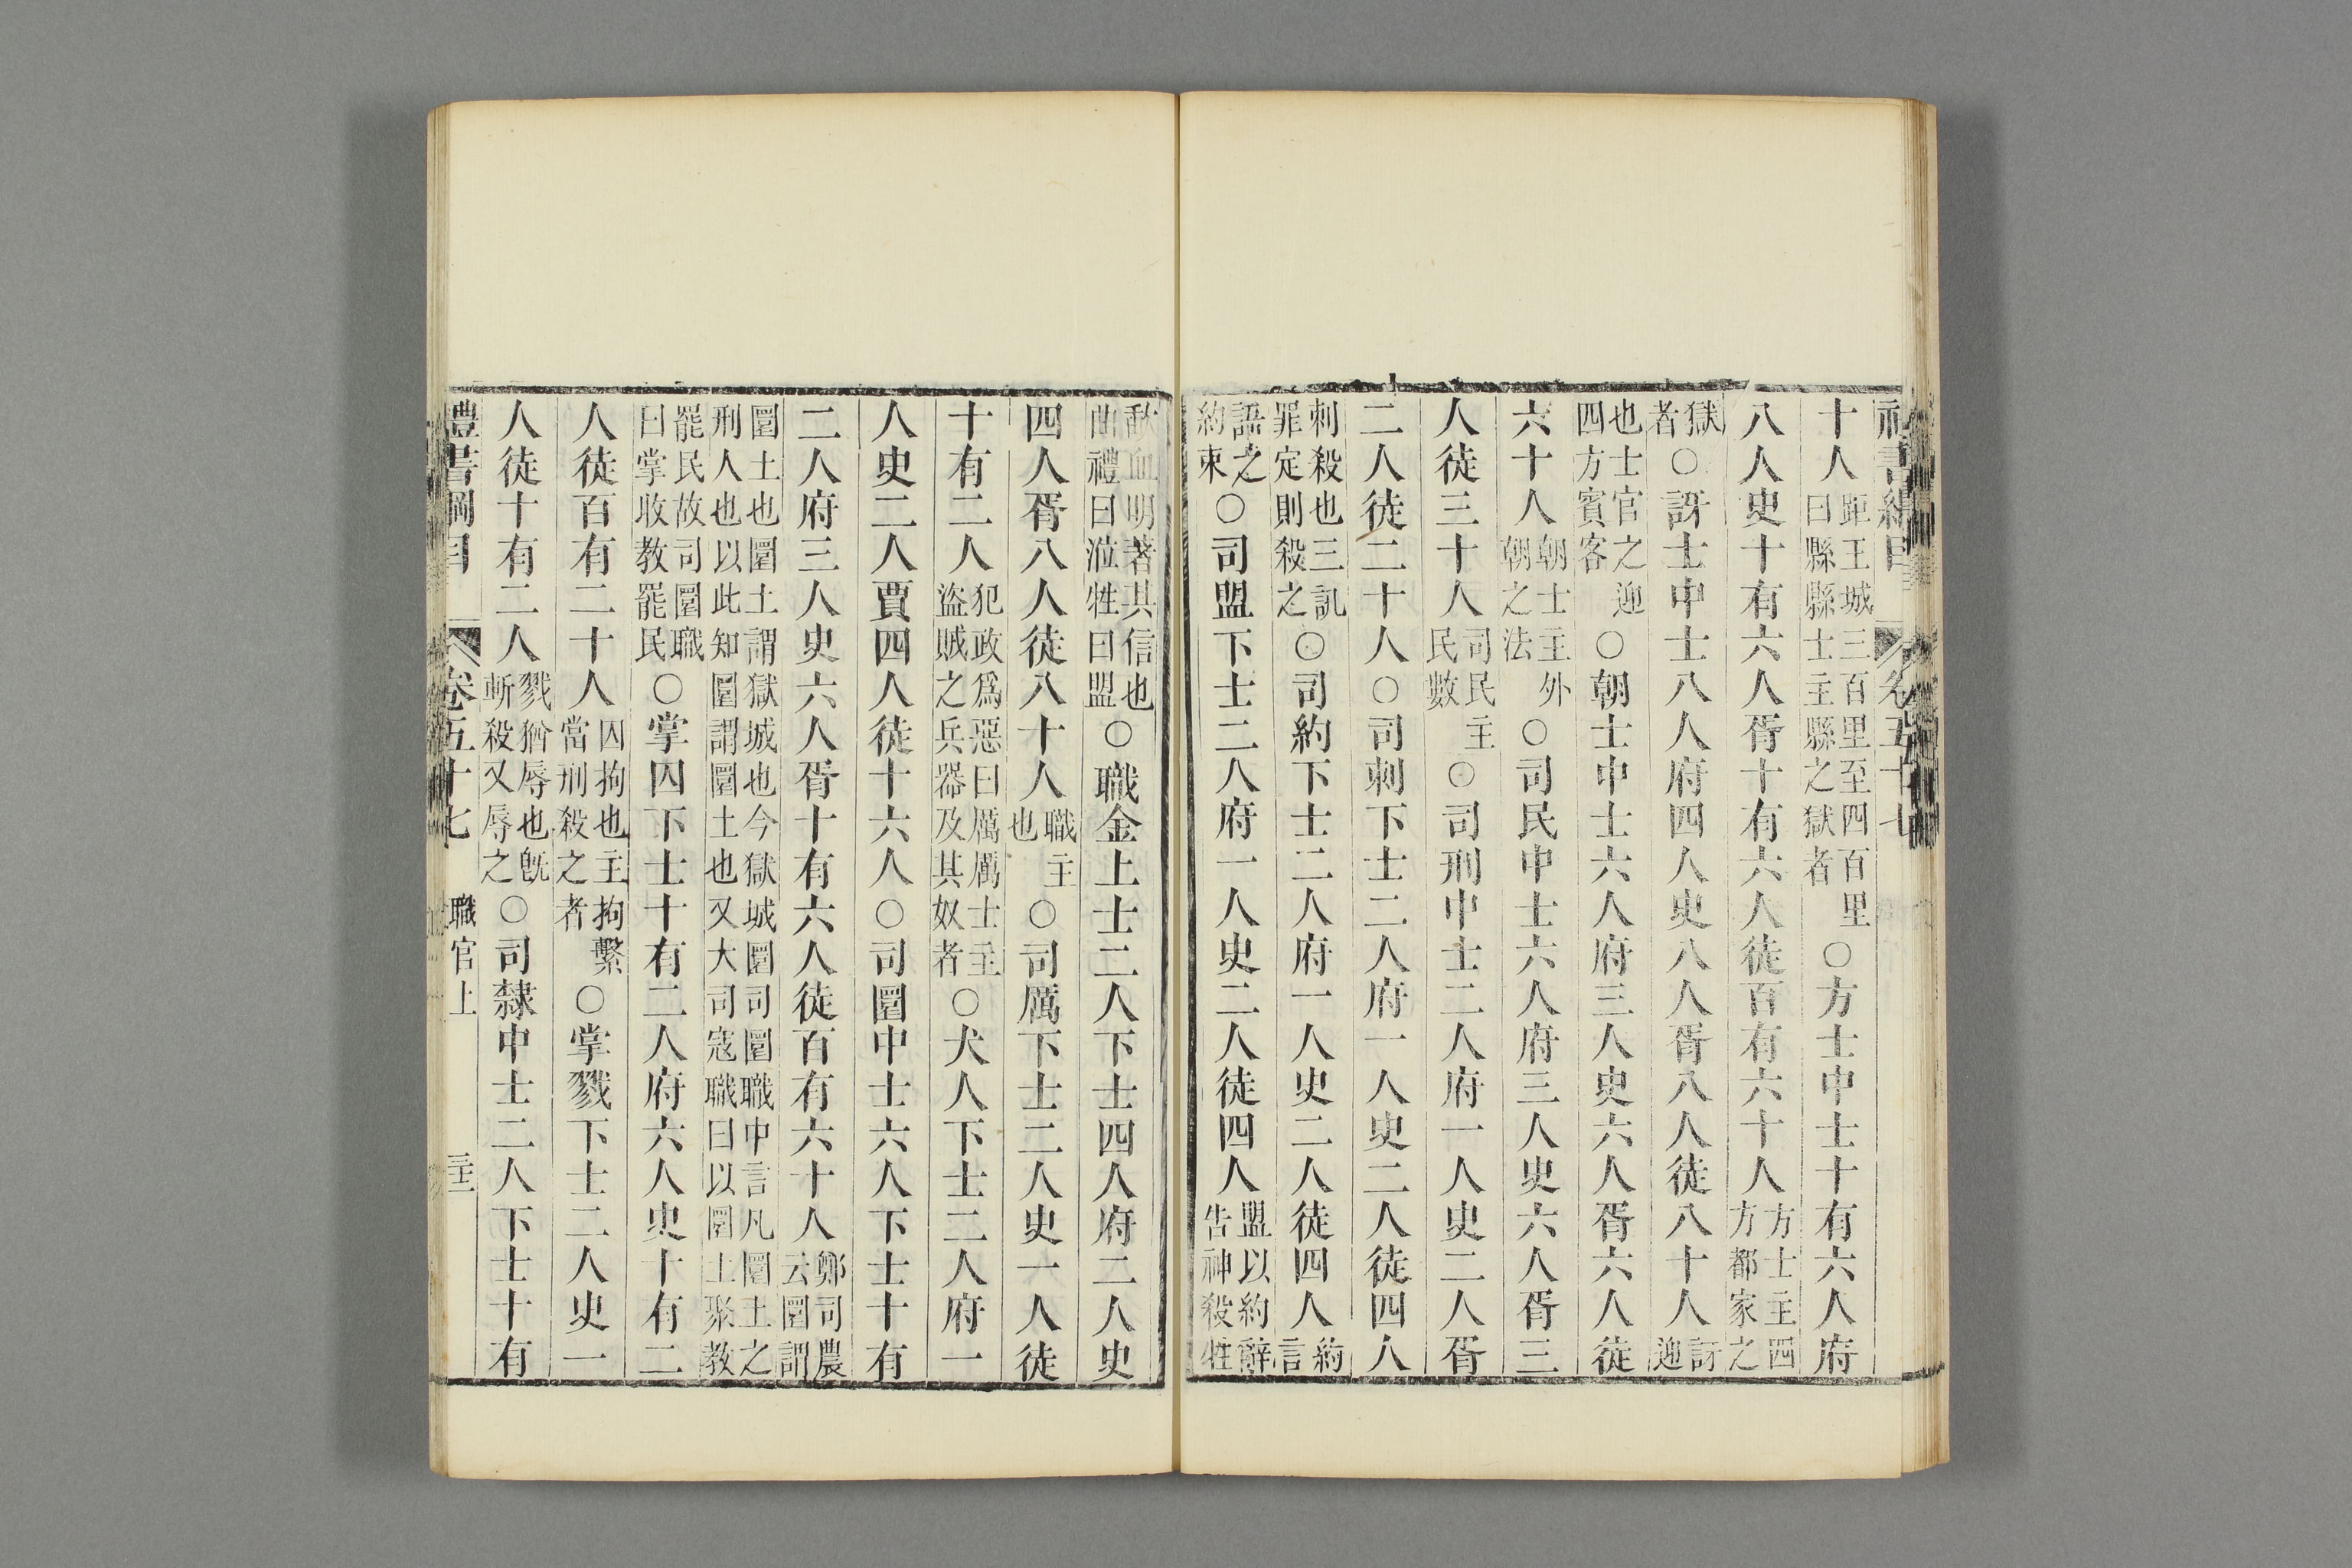 禮書綱目 卷五十七
十人距王城三百里至四百里曰縣縣士主縣之獄者○方士中士十有六人府
八人史十有六人胥十有六人徒百有六十人方士主四方都家之
獄者○訝士中士八人府四人史八人胥八人徒八十人訝迎
也士官之迎四方賓客○朝士中士六人府三人史六人胥六人徒
六十人朝士主外朝之法○司民中士六人府三人史六人胥三
人徒三十人司民主民數○司刑中士二人府一人史二人胥
二人徒二十人○司刺下士二人府一人史二人徒四人
刺殺也三訊罪定則殺之○司約下士二人府一人史二人徒四人約言
語之約束○司盟下士二人府一人史二人徒四人盟以約辭告神殺牲
歃血明著其信也曲禮曰涖牲曰盟○職金上士二人下士四人府二人史
四人胥八人徒八十人職主也○司厲下士二人史一人徒
十有二人犯政爲惡曰厲厲士主盜賊之兵器及其奴者○犬人下士二人府一
人史二人賈四人徒十六人○司圜中士六人下士十有
二人府三人史六人胥十有六人徒百有六十人鄭司農云圜謂
圜土也圜土謂獄城也今獄城圜司圜職中言凡圜土之刑人也以此知圜謂圜土也又大司寇職曰以圜土聚教
罷民故司圜職曰掌收教罷民○掌囚下士十有二人府六人史十有二
人徒百有二十人囚拘也主拘繫當刑殺之者○掌戮下士二人史一
人徒十有二人戮猶辱也旣斬殺又辱之○司隸中士二人下士十有
禮書綱目 卷五十七 職官上